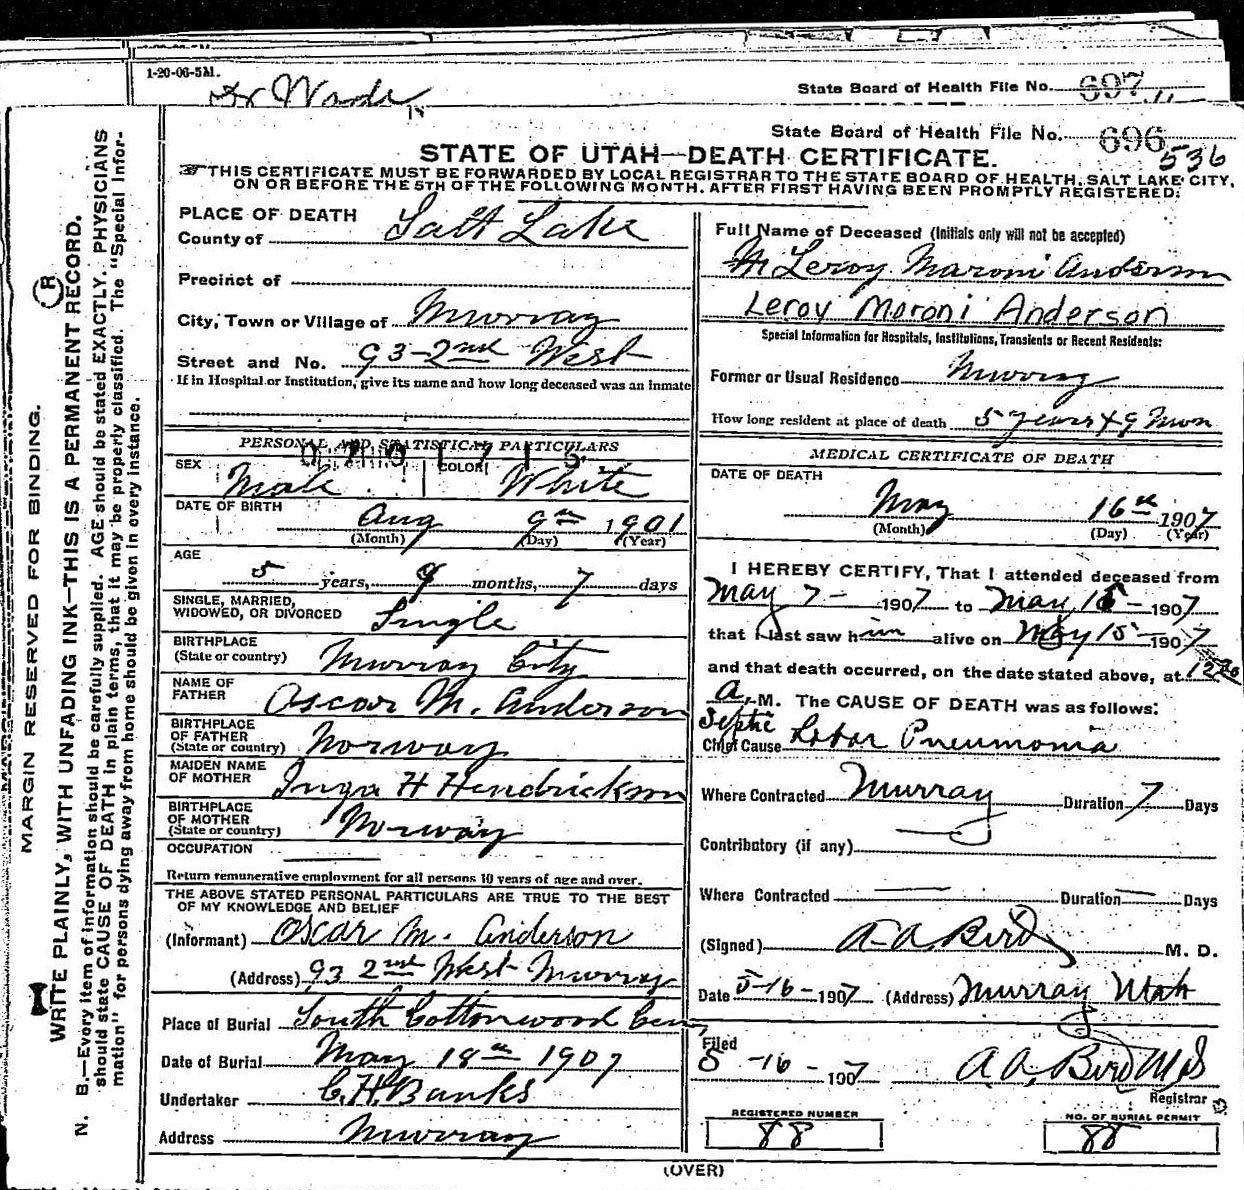 1-20-06-5M.
Dr Wade
State Board of Health File No. 697
State Board of Health File No. 696
536
STATE OF UTAH—DEATH CERTIFICATE.
THIS CERTIFICATE MUST BE FORWARDED BY LOCAL REGISTRAR TO THE STATE BOARD OF HEALTH, SALT LAKE CITY,
ON OR BEFORE THE 5TH OF THE FOLLOWING MONTH. AFTER FIRST HAVING BEEN PROMPTLY REGISTERED.
MARGIN RESERVED FOR BINDING.
R
WRITE PLAINLY, WITH UNFADING INK—THIS IS A PERMANENT RECORD.
N. B.—Every item of information should be carefully supplied. AGE should be stated EXACTLY. PHYSICIANS
should state CAUSE OF DEATH in plain terms, that it may be properly classified. The "Special Infor-
mation" for persons dying away from home should be given in every instance.
PLACE OF DEATH
County of Salt Lake
Precinct of
City, Town or Village of Murray
Street and No. 93-2nd West
If in Hospital or Institution, give its name and how long deceased was an inmate
PERSONAL AND STATISTICAL PARTICULARS
SEX Male
COLOR White
DATE OF BIRTH
Aug 9th 1901
(Month) (Day) (Year)
AGE
5 years, 9 months, 7 days
SINGLE, MARRIED,
WIDOWED, OR DIVORCED Single
BIRTHPLACE
(State or country) Murray City
NAME OF
FATHER Oscar M. Anderson
BIRTHPLACE
OF FATHER
(State or country) Norway
MAIDEN NAME
OF MOTHER Inga H Hendrickson
BIRTHPLACE
OF MOTHER
(State or country) Norway
OCCUPATION
Return remunerative employment for all persons 10 years of age and over.
THE ABOVE STATED PERSONAL PARTICULARS ARE TRUE TO THE BEST
OF MY KNOWLEDGE AND BELIEF
(Informant) Oscar M. Anderson
(Address) 93 2nd West Murray
Place of Burial South Cottonwood Cem
Date of Burial May 18th 1907
Undertaker C.H. Banks
Address Murray
Full Name of Deceased (Initials only will not be accepted)
M Leroy Maroni Anderson
Leroy Moroni Anderson
Special Information for Hospitals, Institutions, Transients or Recent Residents:
Former or Usual Residence Murray
How long resident at place of death 5 years & 9 Mon
MEDICAL CERTIFICATE OF DEATH
DATE OF DEATH
May 16th 1907
(Month) (Day) (Year)
I HEREBY CERTIFY, That I attended deceased from
May 7- 1907 to May 15- 1907
that I last saw him alive on May 15- 1907
and that death occurred, on the date stated above, at 12
A. M. The CAUSE OF DEATH was as follows:
Septic
Chief Cause Lobar Pneumonia
Where Contracted Murray Duration 7 Days
Contributory (if any)
Where Contracted Duration Days
(Signed) A-A Bird M. D.
Date 5-16-1907 (Address) Murray Utah
Filed
5-16-1907 A. A. Bird MD
Registrar
REGISTERED NUMBER
88
NO. OF BURIAL PERMIT
88
(OVER)